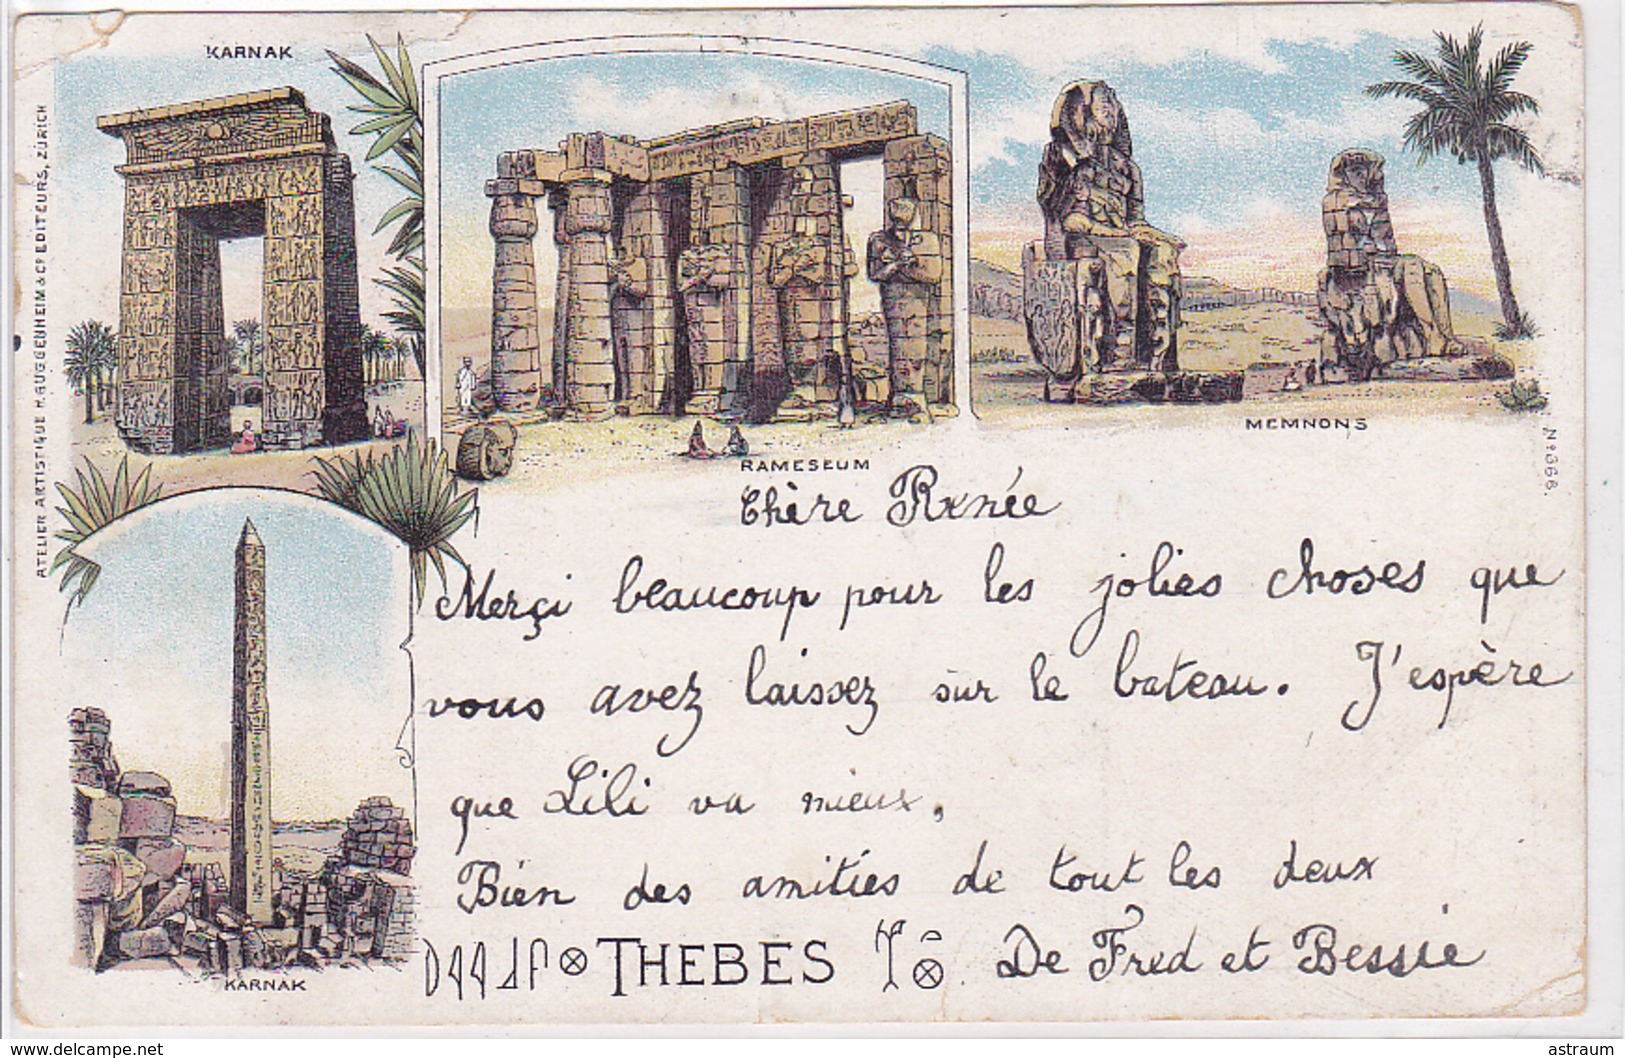 KARNAK
ATELIER ARTISTIQUE H. GUGGENHEIM & Co EDITEURS, ZURICH
RAMESEUM
MEMNONS
No 566.
Chère Renée
Merçi beaucoup pour les jolies choses que
vous avez laissez sur le bateau. J'espère
que Lili va mieux.
Bien des amitiés de tout les deux
THEBES
De Fred et Bessie
KARNAK
www.delcampe.net
astraum